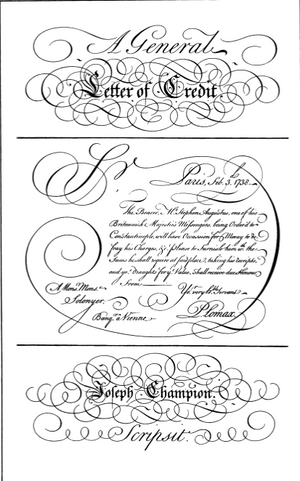 A General
Letter of Credit
Sr.
Paris, Feb. 3. 1738.
The Bearer Mr. Stephen Augustus, one of his
Britannick Majesties Messengers, being Order'd to
Constantinople, will have Occasion for Money to de
fray his Charge, Please to furnish him wth. the
Sums he shall require at said place, taking his receipts,
and yr. draughts for ye. Value, shall receive due Honour
from
A Monsr. Mons.
Yr. very hble. Servant
Selonyer.
Plomax.
Banqr. a Vienne
Joseph Champion.
Scripsit.